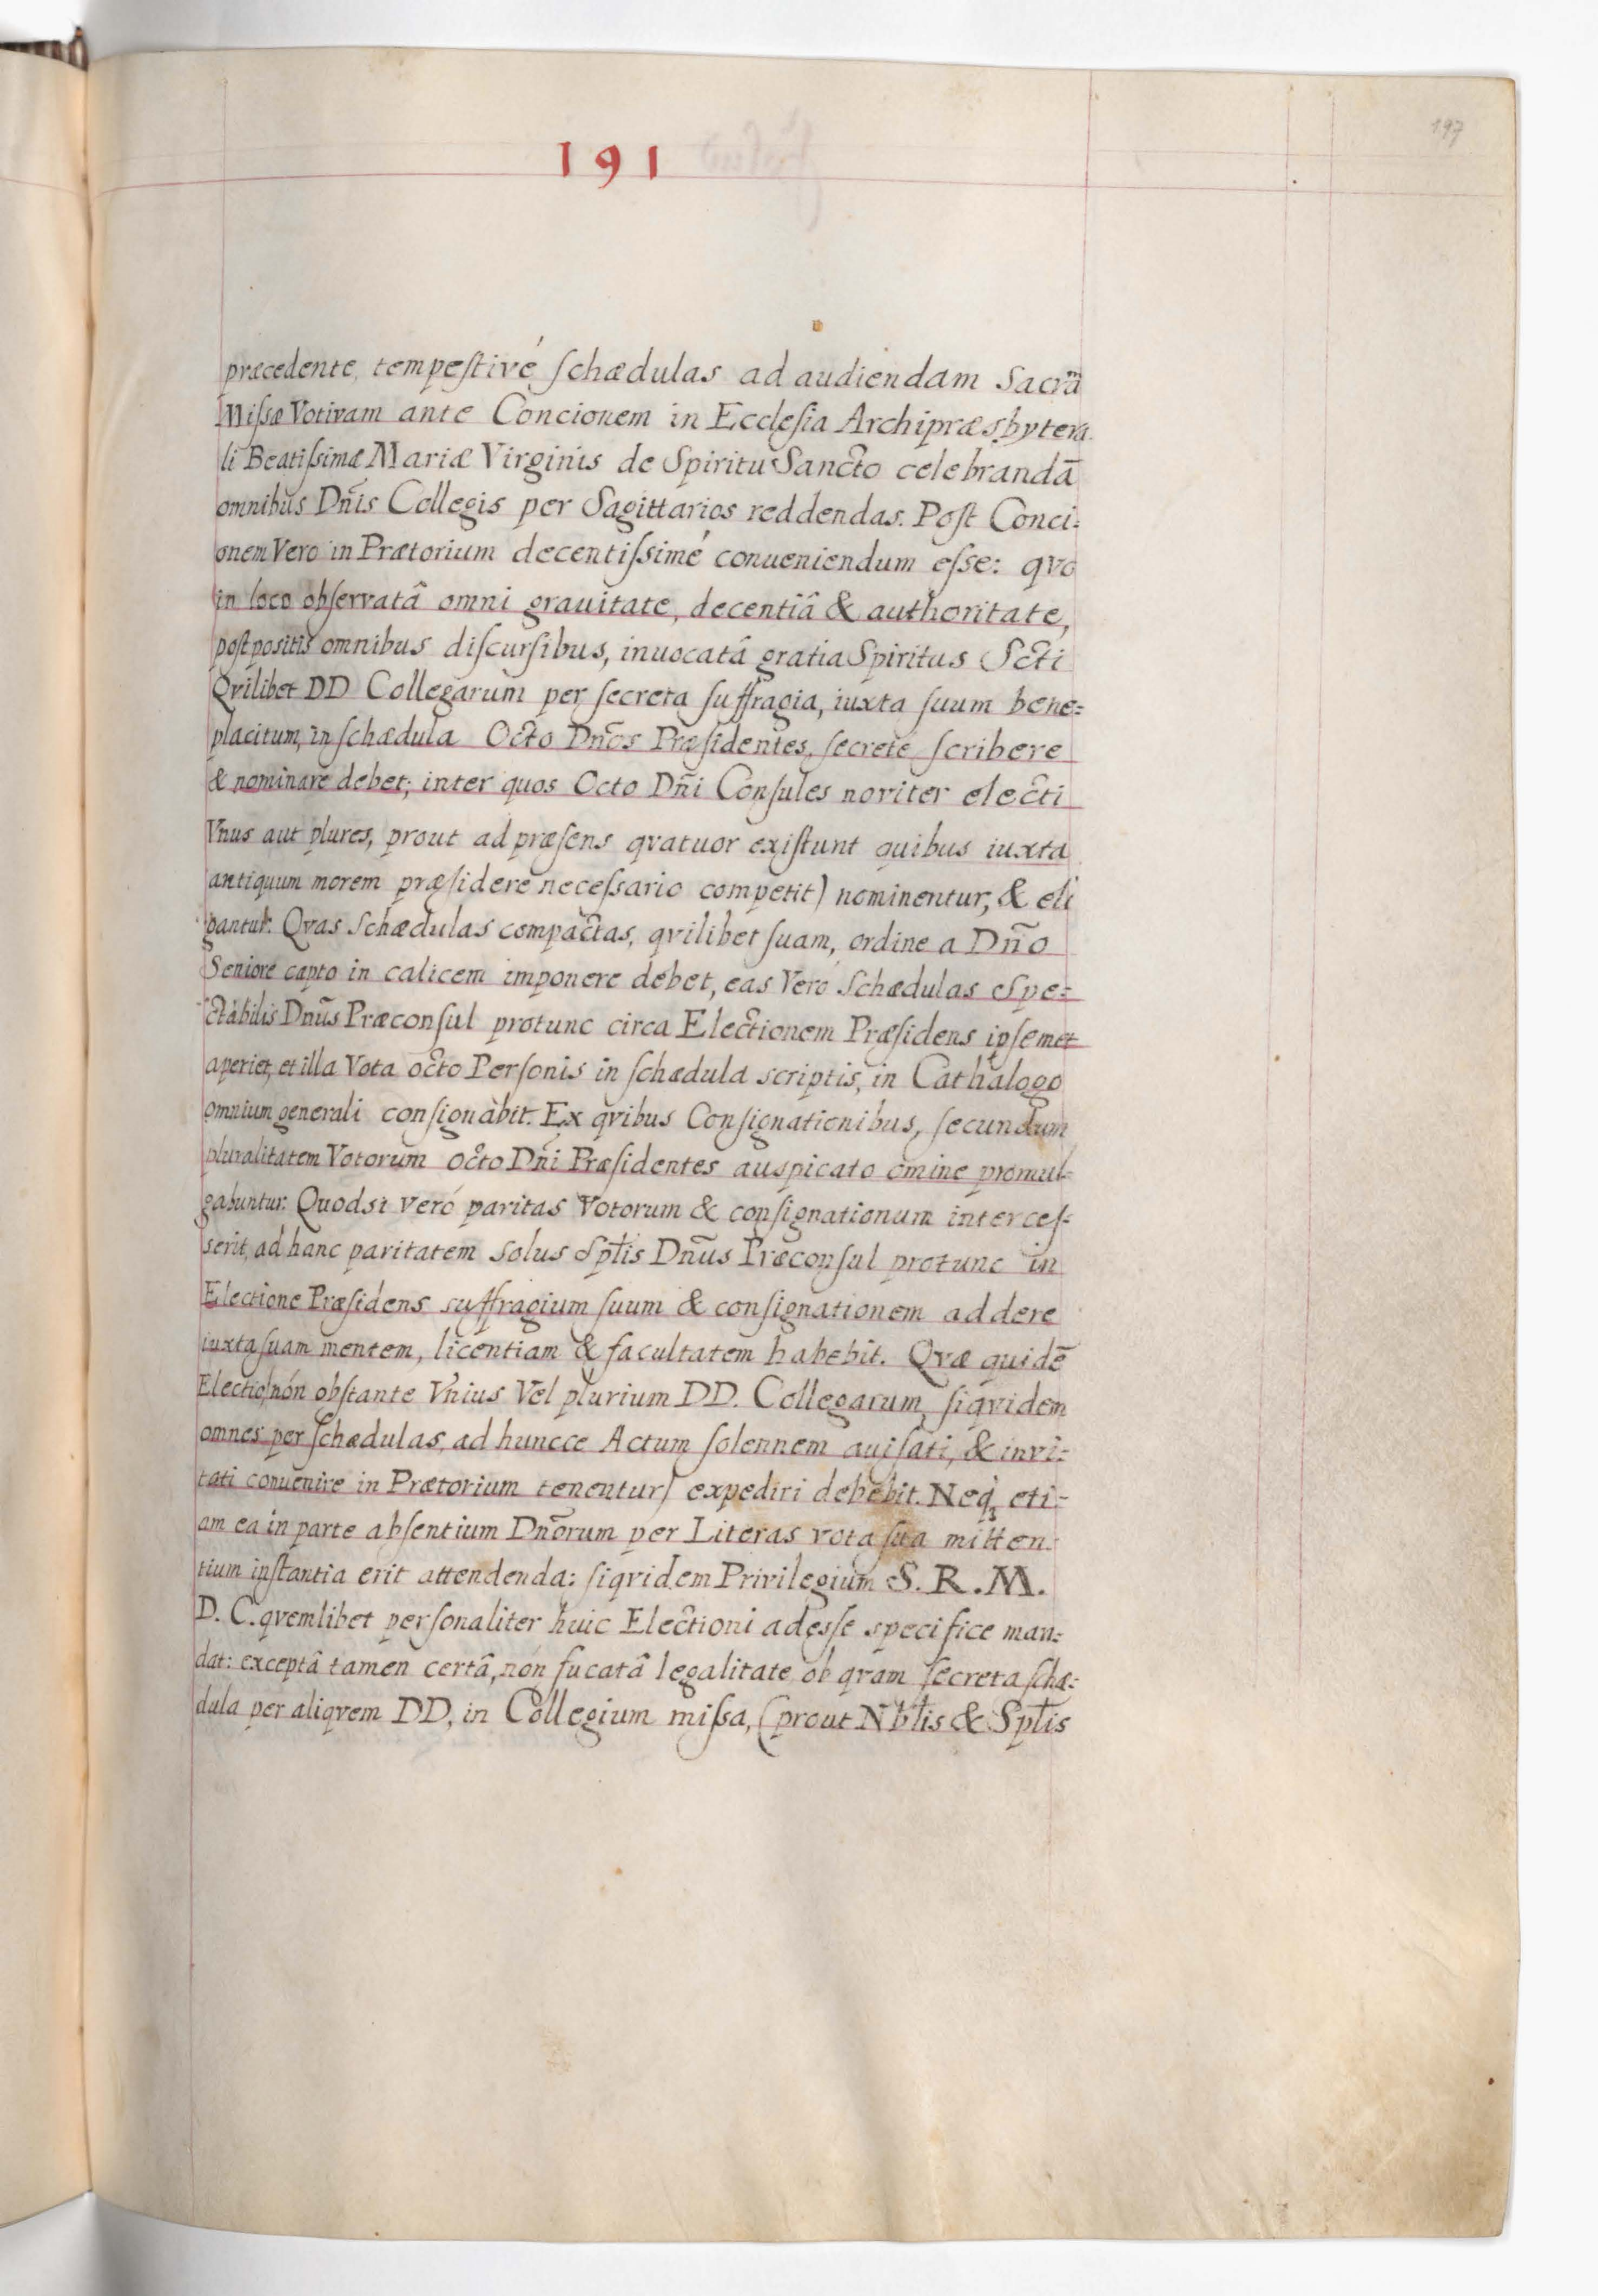 191
197
præcedente, tempeſtivé ſchædulas ad audiendam Sacrã
Miſsæ Votivam ante Concionem in Eccleſia Archipræsbytera
li Beatiſsimæ Mariæ Virginis de Spiritu Sancto celebrandã
omnibus Dñis Collegis per Sagittarios reddendas. Poſt Conci:
onem Vero in Prætorium decentiſsimé conueniendum eſse: qvo
in loco obſervatâ omni grauitate, decentiâ & authoritate,
poſtpositis omnibus diſcurſibus, inuocatâ gratia Spiritus Scti
Qvilibet DD Collegarum per ſecreta ſuffragia, iuxta ſuum bene:
placitum, in ſchædula Octo Dños Præſidentes, ſecrete ſcribere
& nominare debet; inter quos Octo Dñi Conſules noviter electi
Vnus aut plures, prout ad præſens qvatuor exiſtunt quibus iuxta
antiquum morem præſidere neceſsario competit) nominentur, & eli
gantur. Qvas Schædulas compactas, qvilibet ſuam, ordine a Dño
Seniore capto in calicem imponere debet, eas Vero Schædulas Spe:
ctabilis Dnũs Præconſul protunc circa Electionem Præſidens ipſemet
aperiet, et illa Vota octo Perſonis in ſchædula scriptis, in Cathalogo
omnium generali conſignàbit. Ex qvibus Conſignationibus, ſecundum
pluralitatem Votorum octo Dñi Præſidentes auspicato omine promul:
gabuntur. Quodsi veró paritas Votorum & conſignationum interceſ:
serit, ad hanc paritatem solus Sptlis Dnũs Præconſul protunc in
Electione Præſidens suffragium ſuum & conſignationem addere
iuxta ſuam mentem, licentiam & facultatem habebit. Qvæ quidẽ
Electio (nón obſtante Vnius Vel plurium DD. Collegarum, ſiqvidem
omnes per ſchædulas, ad huncce Actum ſolennem auiſati, & invi:
tati convenire in Prætorium tenentur) expediri debebit. Neq, eti:
am ea in parte abſentium Dnõrum per Literas vota ſua mitten:
tium inſtantia erit attendenda: ſiqvidem Privilegium S. R. M.
D. C. qvemlibet perſonaliter huic Electioni adeſſe specifice man:
dat: exceptâ tamen certâ, nón fucatâ legalitate, ob qvam ſecreta ſchæ:
dula per aliqvem DD, in Collegium miſsa, (prout Nbtlis & Sptlis